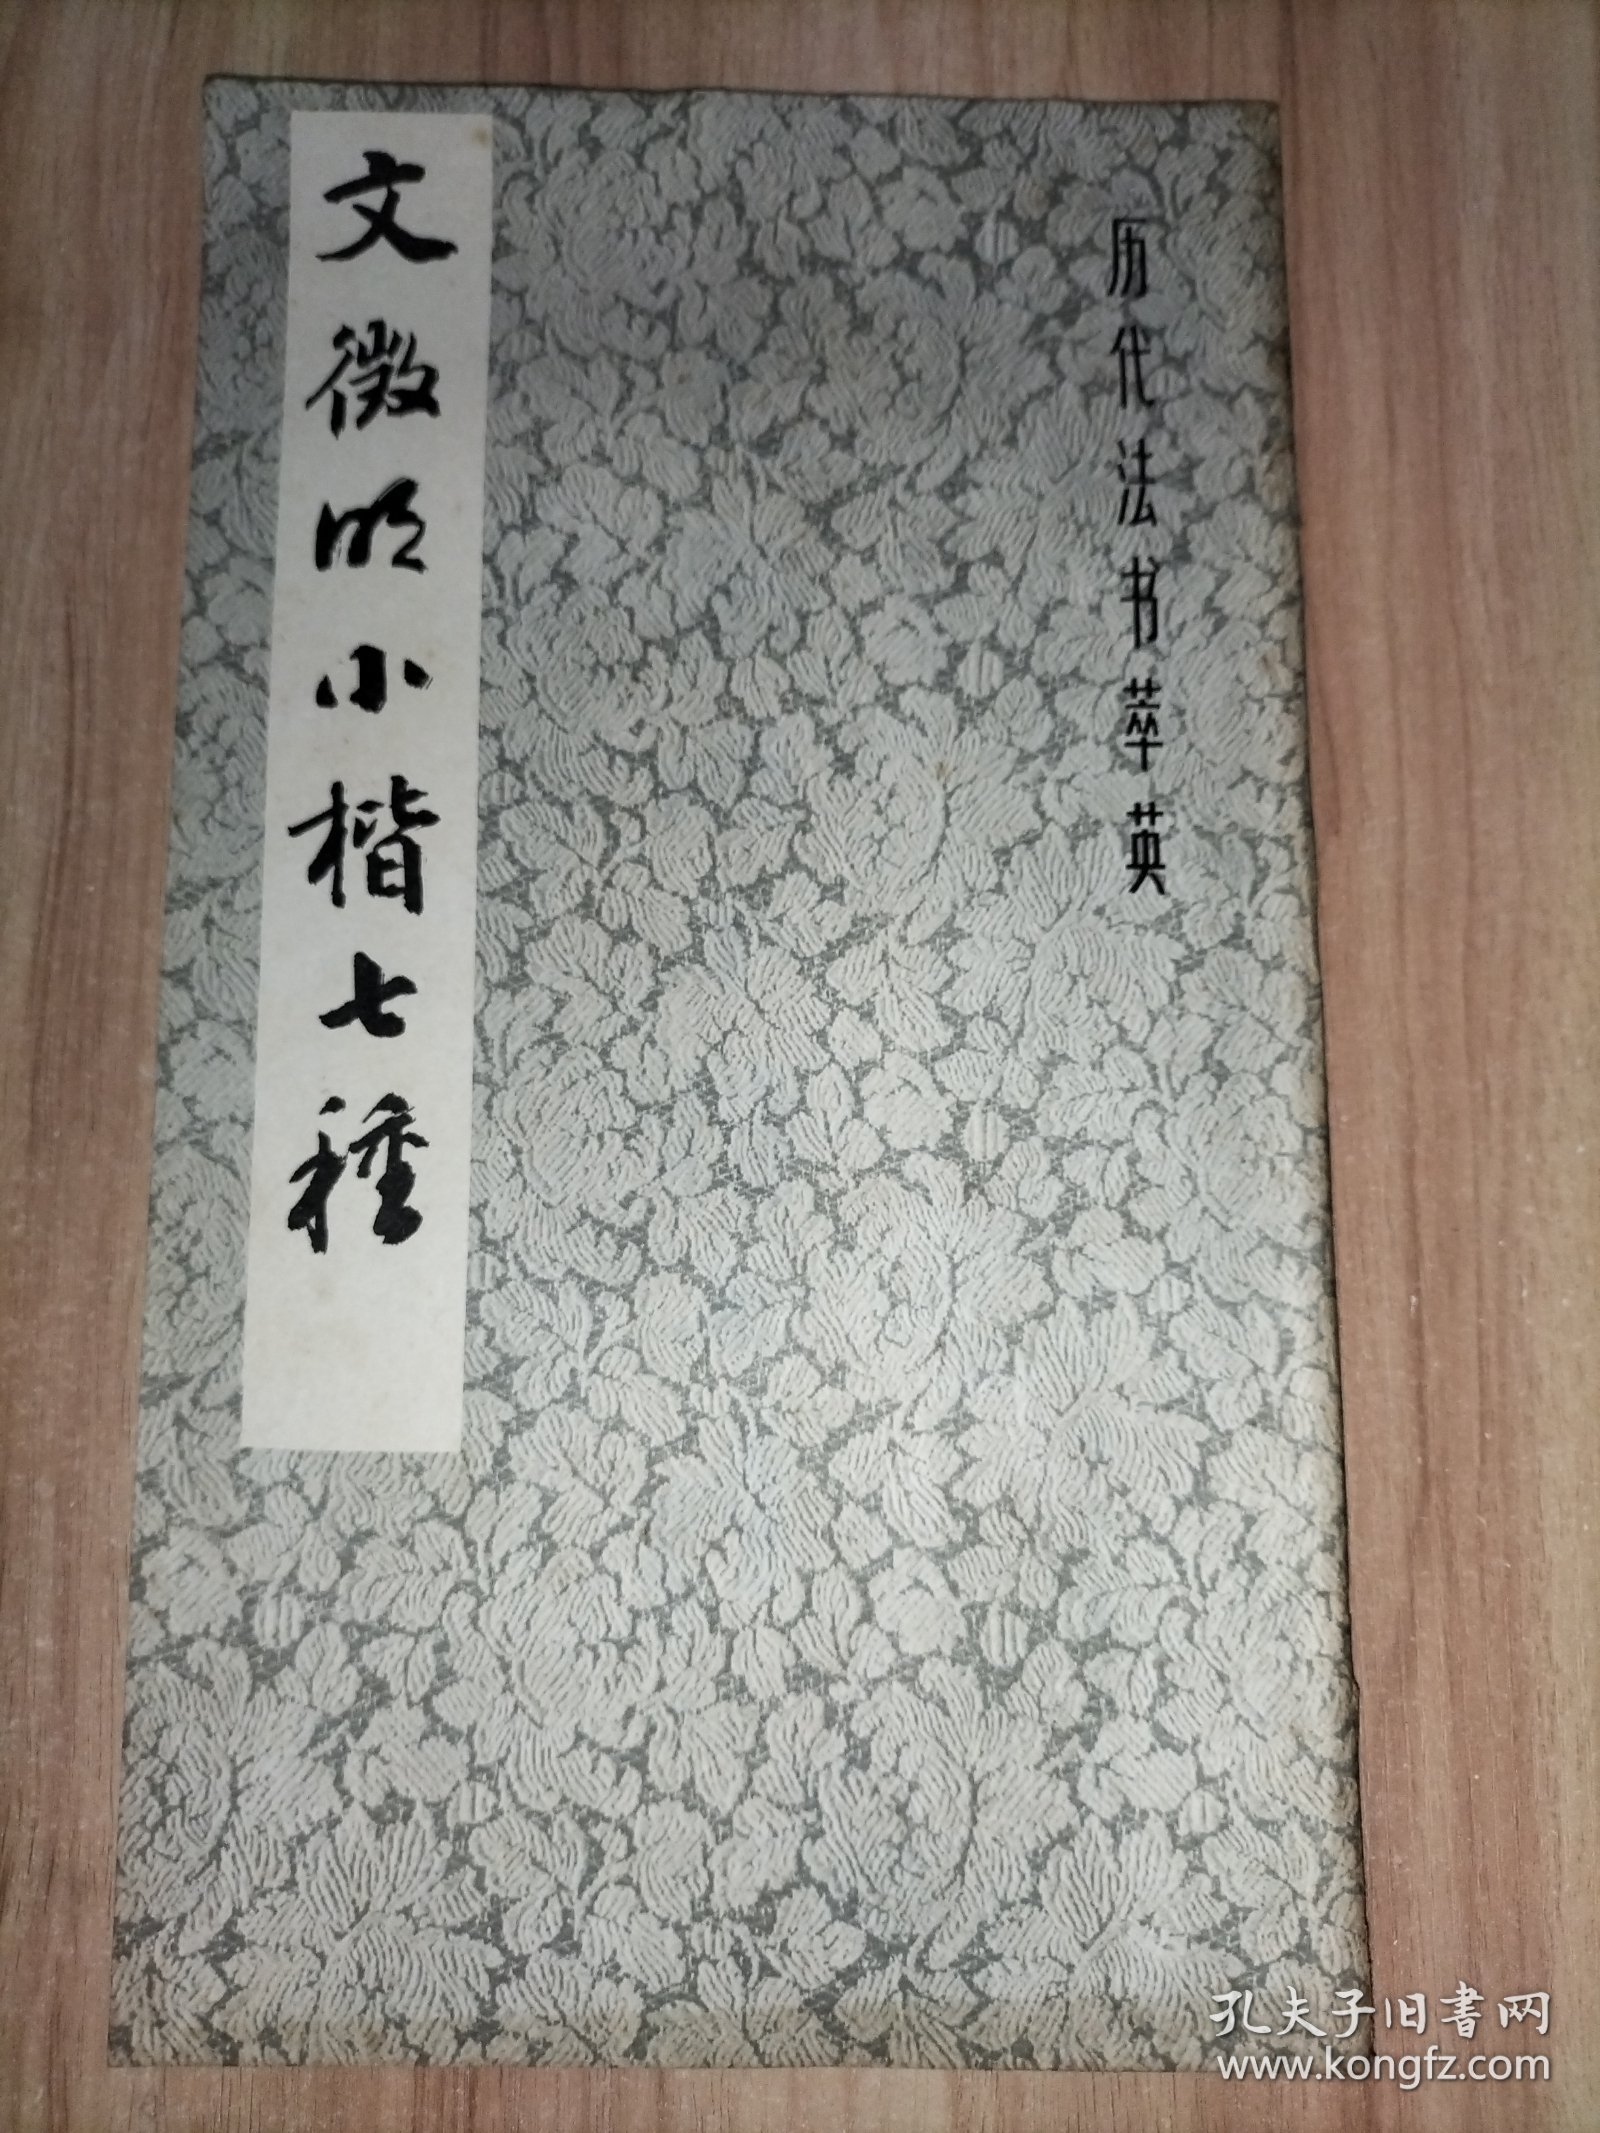 历代法书萃英
文徵明小楷七種
孔夫子旧書网
www.kongfz.com